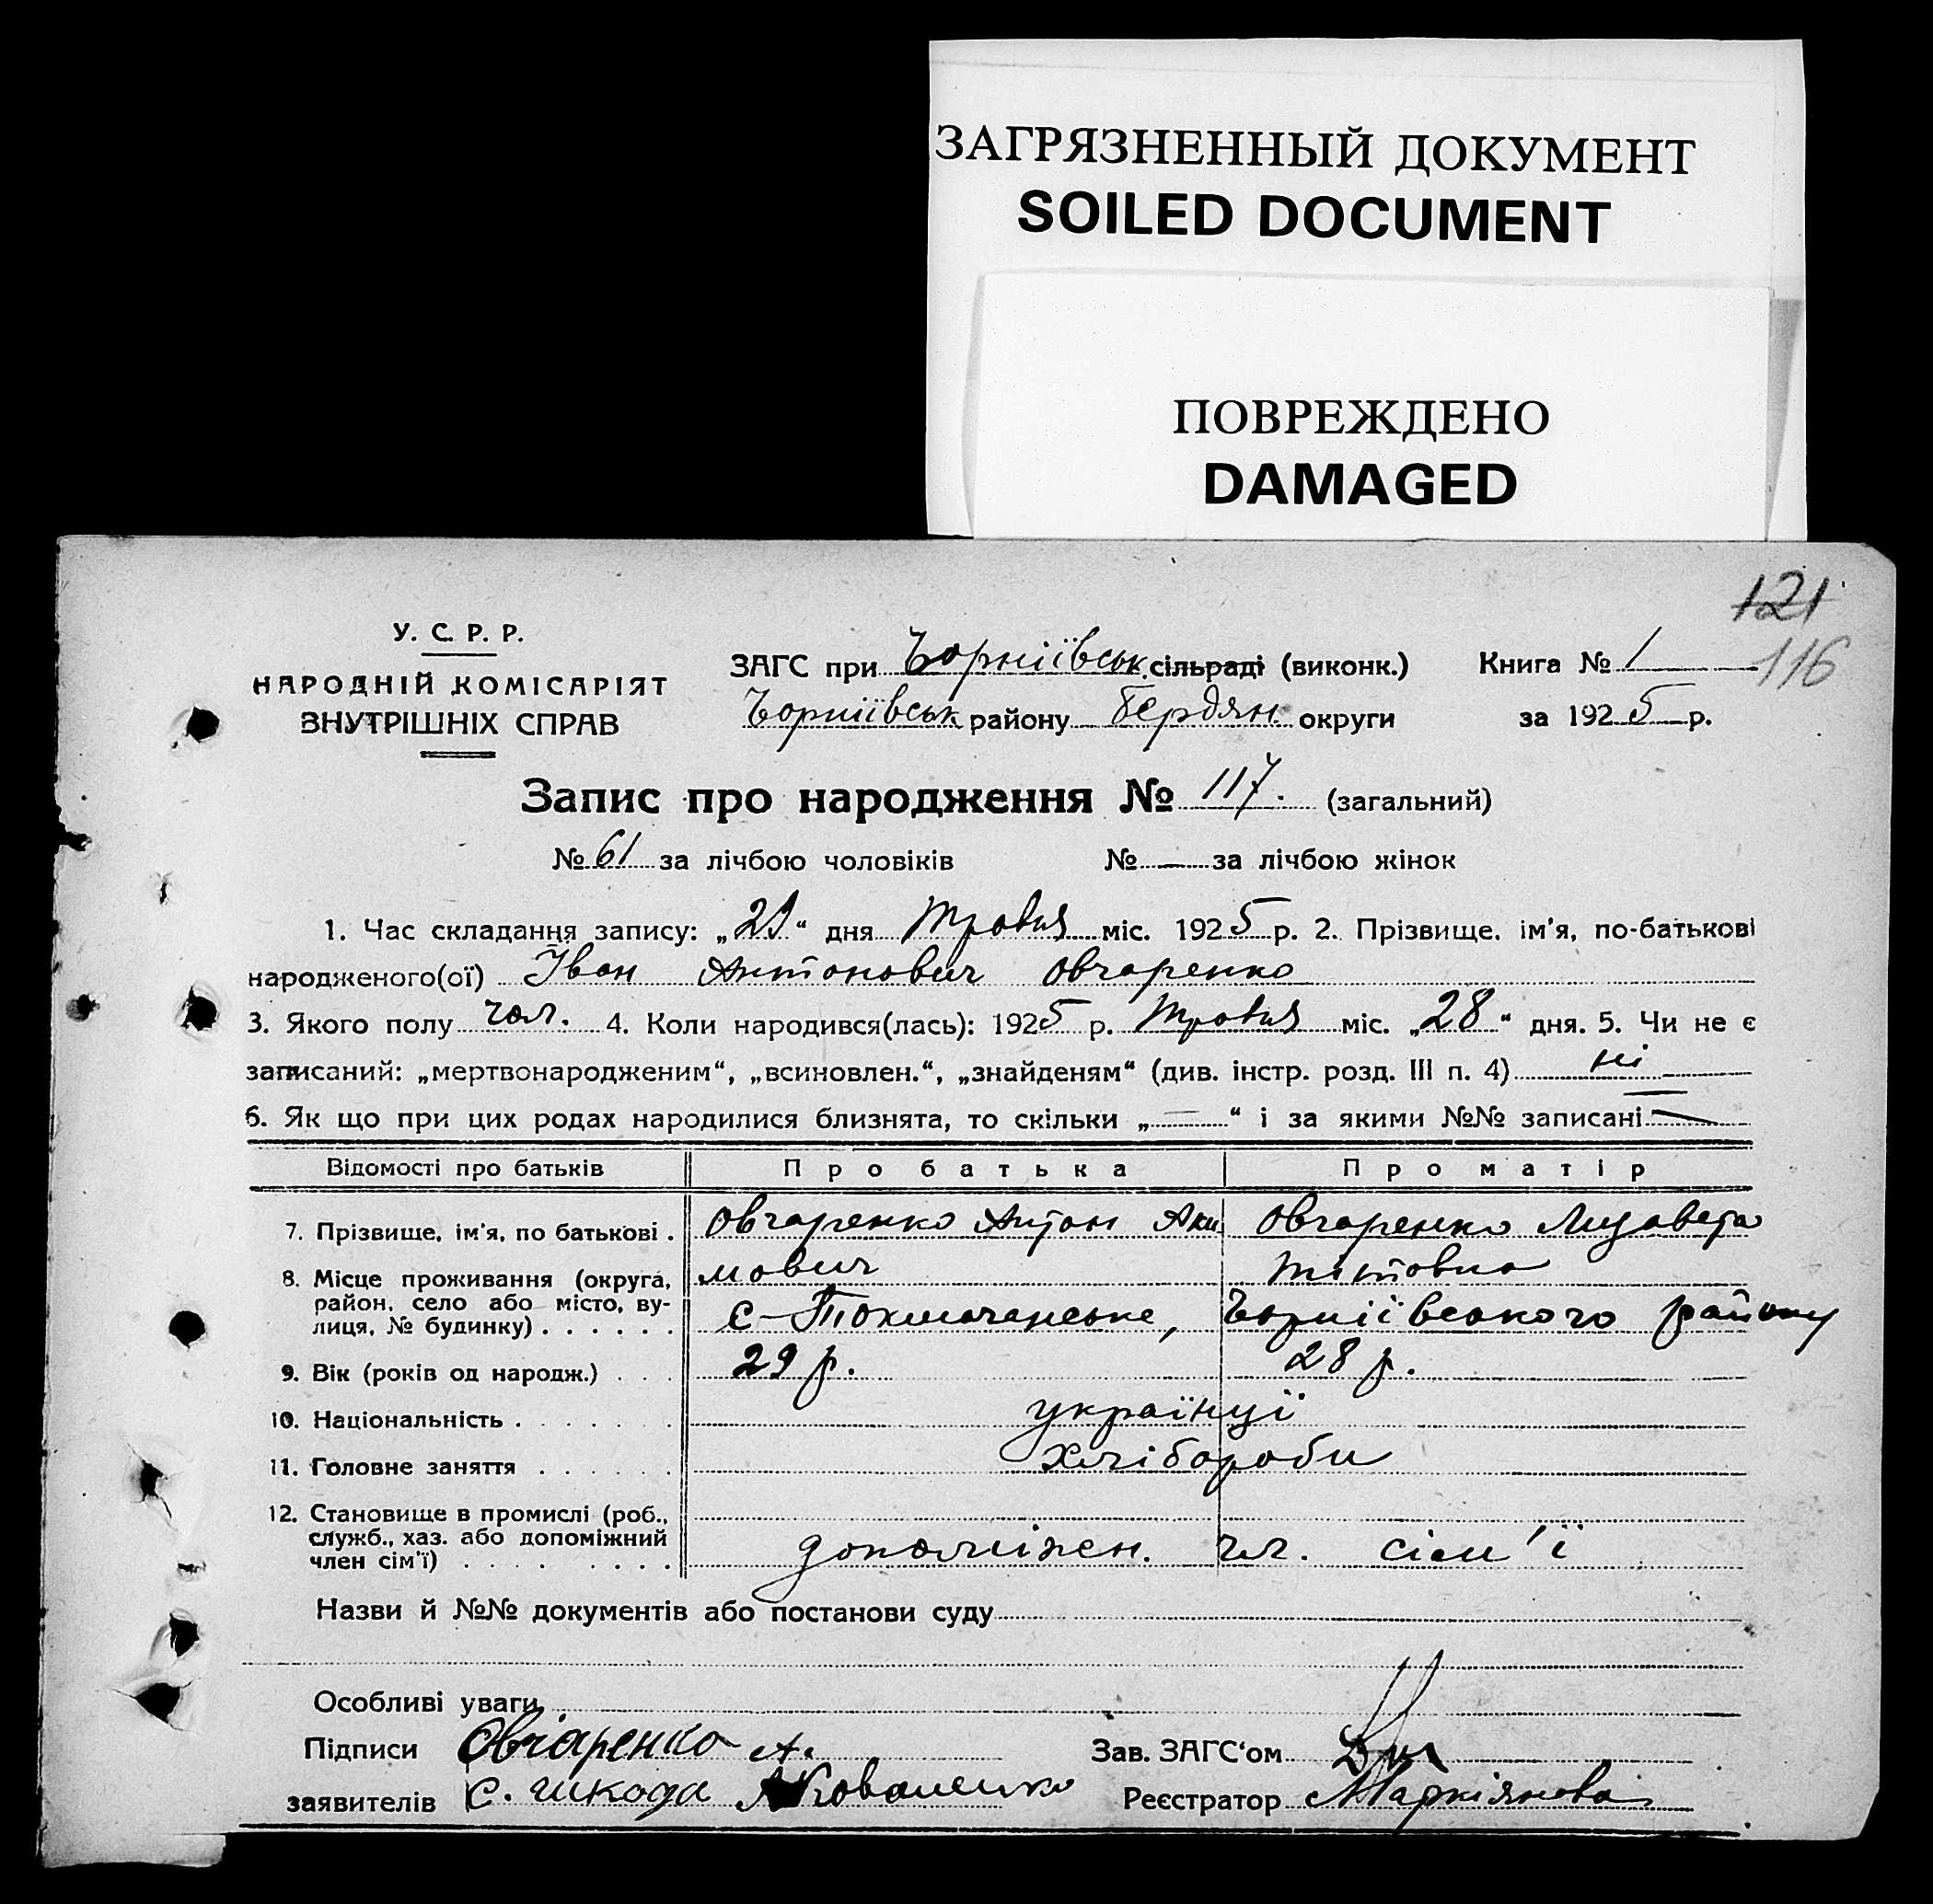 ЗАГРЯЗНЕННЫЙ ДОКУМЕНТ
SOILED DOCUMENT
ПОВРЕЖДЕНО
DAMAGED
121
116
У. С. Р. Р.
НАРОДНІЙ КОМІСАРІЯТ
ВНУТРІШНІХ СПРАВ
ЗАГС при Чорніївськ. сільраді (виконк.) Книга № 1
Чорніївськ району Бердян. округи за 1925 р.
Запис про народження № 117. (загальний)
№ 61 за лічбою чоловіків № — за лічбою жінок
1. Час складання запису: „29“ дня Травня міс. 1925 р. 2. Прізвище, ім'я, по-батькові
народженого(ої) Іван Антонович Овчаренко
3. Якого полу чол. 4. Коли народився(лась): 1925 р. Травня міс. „28“ дня. 5. Чи не є
записаний: „мертвонародженим“, „всиновлен.“, „знайденям“ (див. інстр. розд. III п. 4) ні
6. Як що при цих родах народилися близнята, то скільки „—“ і за якими №№ записані —
Відомості про батьків Про батька Про матір
7. Прізвище, ім'я, по батькові . Овчаренко Антон Аки Овчаренко Лизавета
мович Тітовна
8. Місце проживання (округа,
район, село або місто, ву-
лиця, № будинку) . . . . . . с-Токмачанське, Чорніївського району
9. Вік (років од народж.) . . . 29 р. 28 р.
10. Національність . . . . . . українці
11. Головне заняття . . . . . . Хлібороби
12. Становище в промислі (роб.,
служб., хаз. або допоміжний
член сім'ї) . . . . . . . . допоміжн. чл. сім'ї
Назви й №№ документів або постанови суду
Особливі уваги
Підписи Овчаренко А. Зав. ЗАГС'ом
заявителів С. Шкода А Коваленко Реєстратор Маркіянова